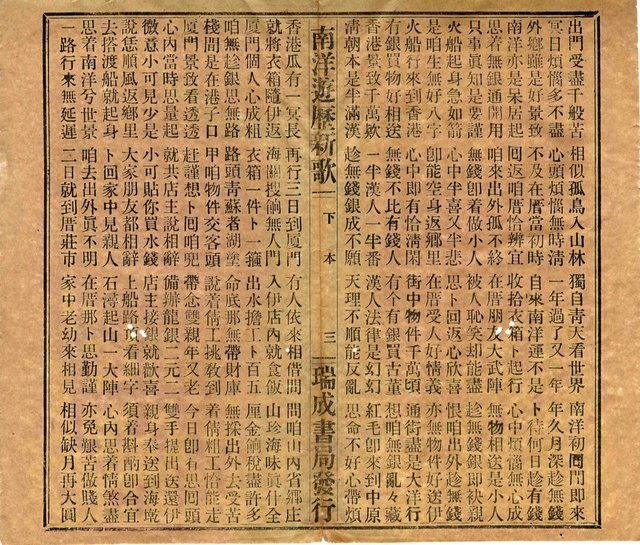 出門受盡千般苦 相似孤鳥入山林 獨自青天看世界 南洋初囘門即來
冥日煩惱多不盡 心頭煩惱無時清 一年過了又一年 年久月深趁無錢
外鄉雖是好景致 不及在厝當初時 自來南洋運不是 卜待何日趁有錢
南洋亦是呆居起 囘返咱厝恰辨宜 收拾衣箱卜起行 心中煩惱無心成
思着無銀通開用 咱來出外孤不終 在厝朋友大武陣 無物相送是小人
只事眞知是要謹 無錢卽着做小人 被人恥笑却能盡 趁無錢銀即袂親
火船起身急如箭 心中半喜又半悲 思卜囘返心欣喜 恨咱出外趁無錢
是咱生無好八字 卽能空身返鄉里 在厝受人好情義 亦無物件分厝邊
火船行來到香港 心中卽有恰清閑 街中物件千萬頃 通街盡是大洋行
有銀買物好相送 無錢不比有錢人 有个有銀買古董 想咱無銀亂々藏
香港景致千萬欵 一半漢人一半番 漢人法律是幻幻 紅毛卽來到中原
淸朝本是半滿漢 趁無錢銀成不願 天理不順能反亂 思命不好心帶煩
南洋遊歷新歌 下本 三 瑞成書局發行
香港瓜有一冥長 再行三日到厦門 有人依來相借問 問咱山內省鄉庄
就將衣箱隨伊返 海關搜餉無人門 入伊店內就食飯 山珍海味眞什全
厦門個人心成粗 衣箱一件卜一箍 出水擔工卜百五 厘金餉稅盡許多
咱無趁銀思無路 路頭靑蘇者湖塗 命底那無帶財庫 無採出外去受苦
棧間是在港子口 甲咱物件交客頭 說着倩工挑敎到 着倩粗工恰能走
厦門景致看透透 赶謹想卜囘咱兜 帶念雙親年又老 今日卽有思回頭
心內當時思量起 就共店主說相辭 備辦龍銀二元二 雙手提出送還伊
微意小可見少是 小可貼你買水錢 店主接銀就歡喜 親身奉送到海墘
說恁順風返鄉里 大家朋友都相辭 上船路頂看細字 須着斟酌卽合宜
去搭渡船就起身 卜回家中見親人 石濤起山一大陣 心中思着情煞盡
思着南洋兮世景 咱去出外眞不明 在厝那卜思勤謹 亦免艱苦做賤人
一路行來無延遲 二日就到厝庄市 家中老幼來相見 相似缺月再大圓